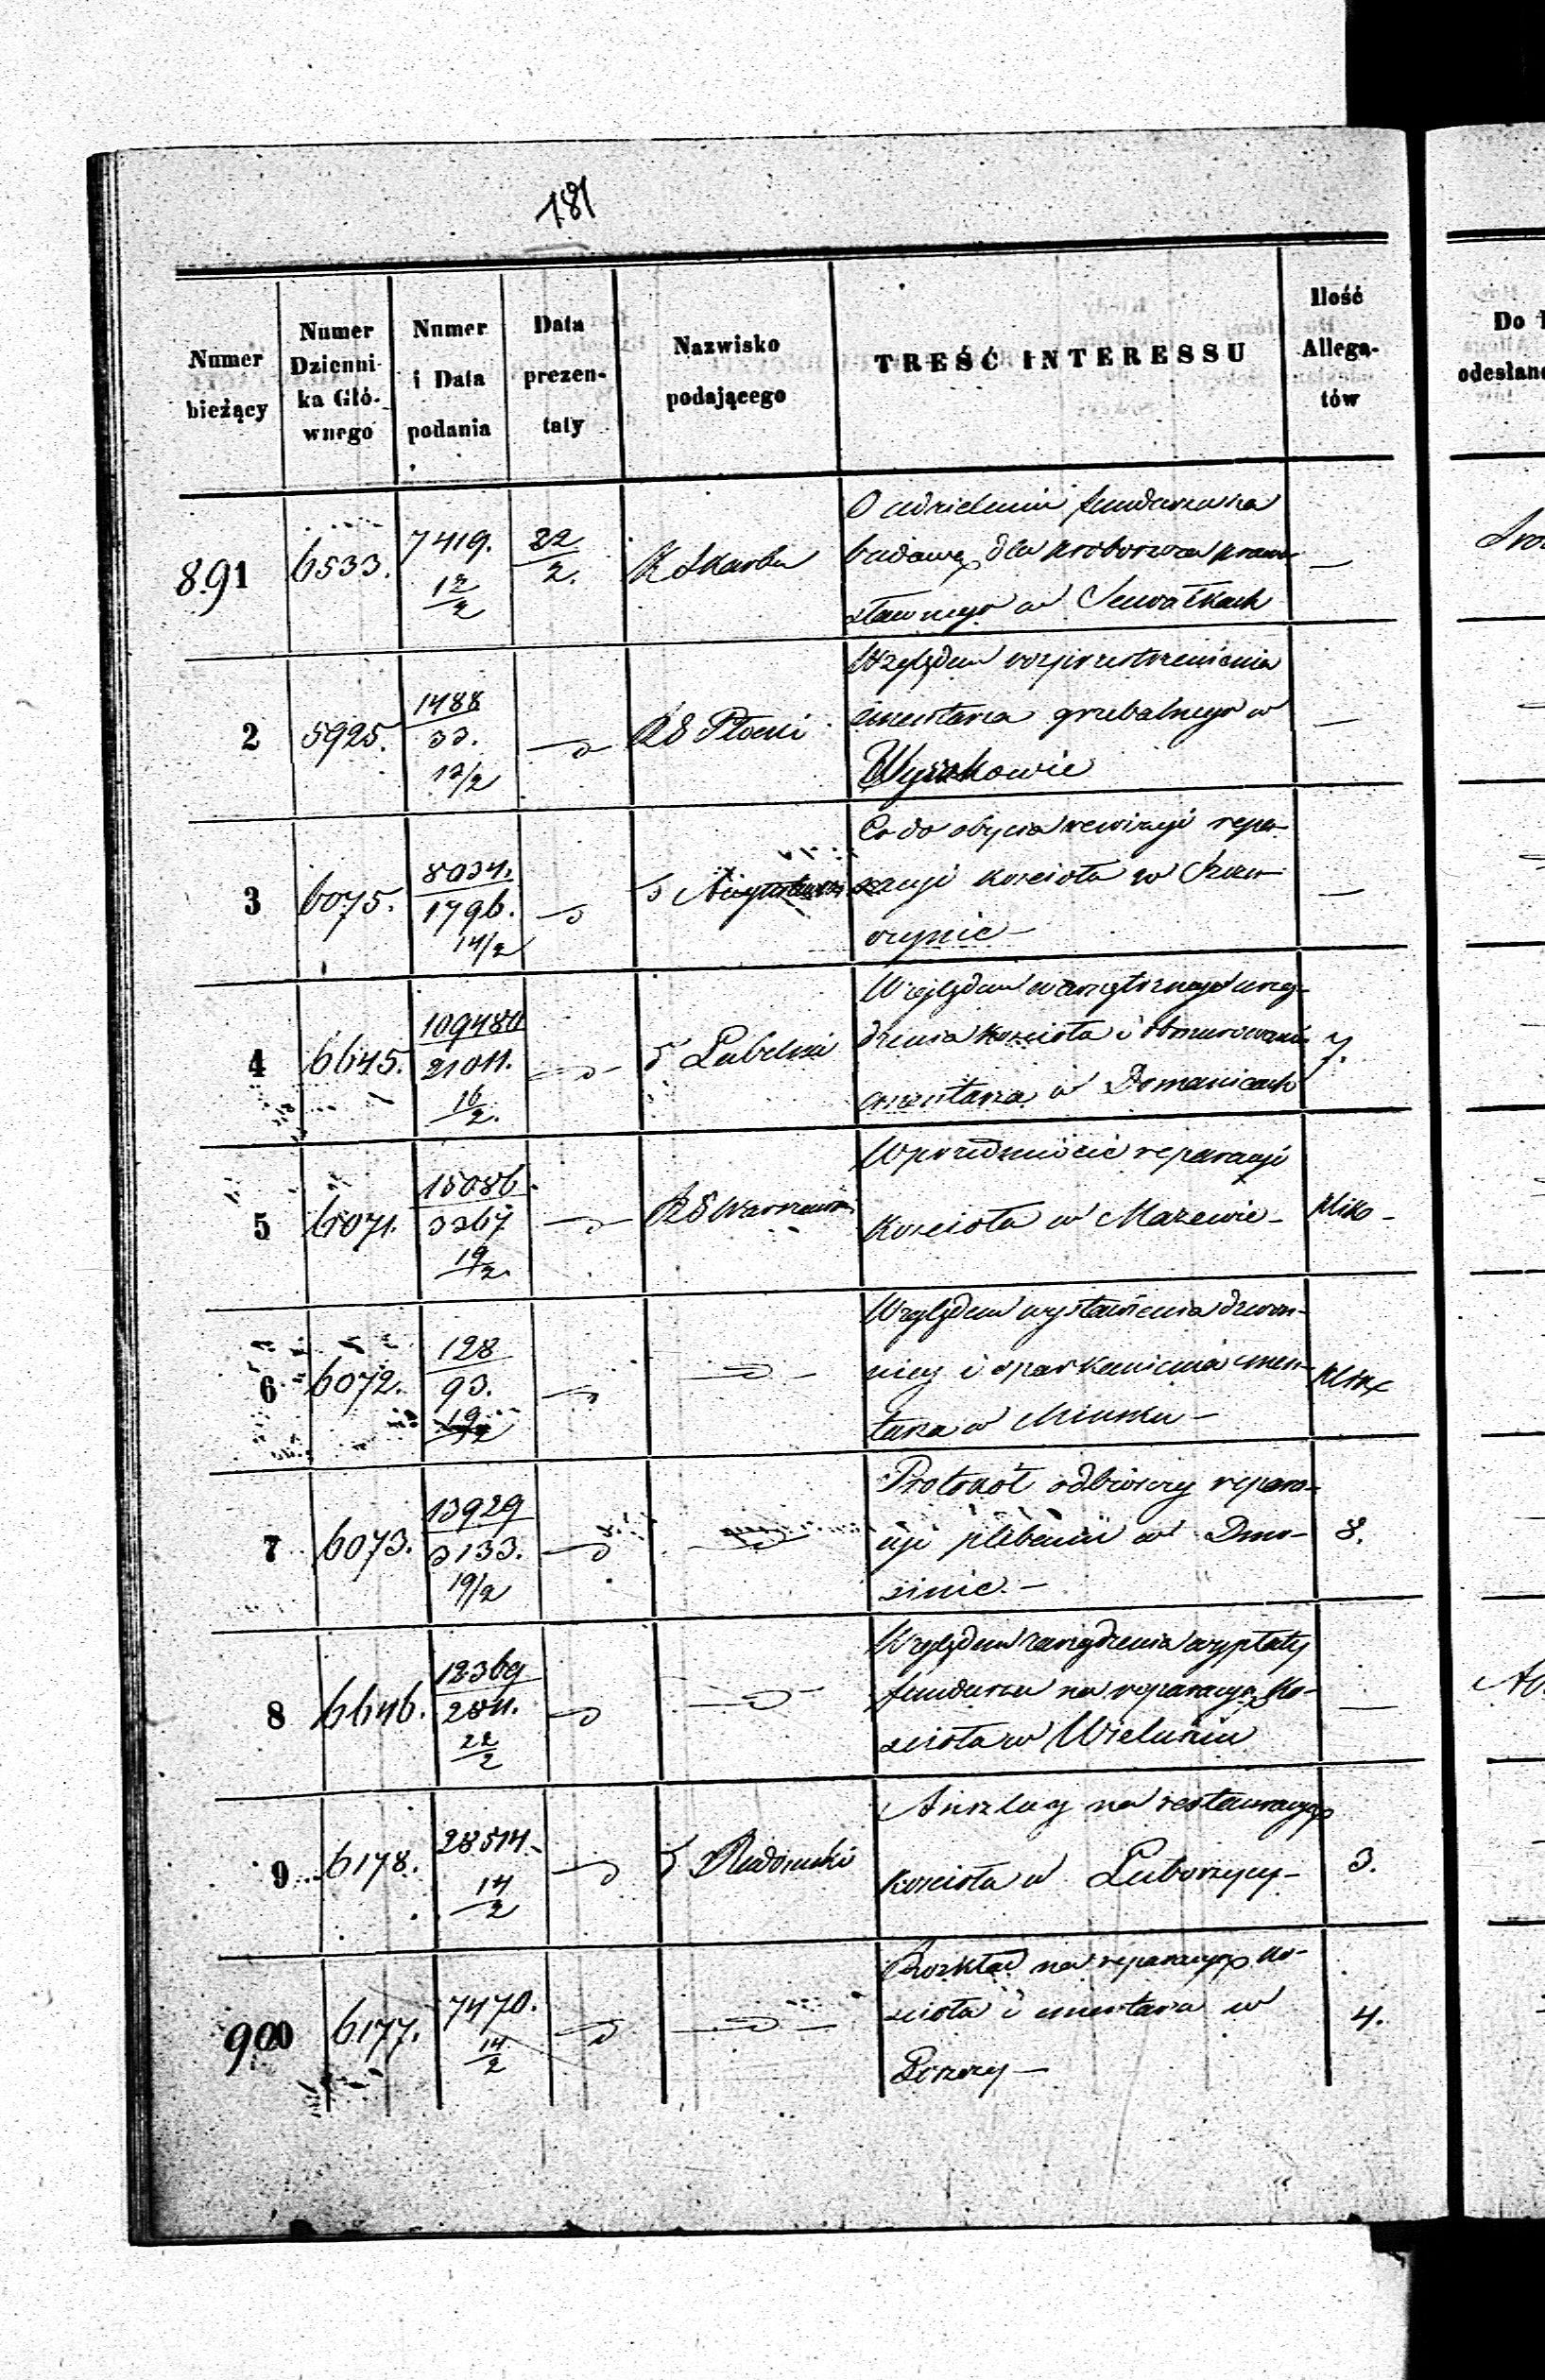 181
Numer bieżący
Numer Dzienni-ka Głó-wnego
Numer i Data podania
Data prezen-taty
Nazwisko podającego
TREŚĆ INTERESSU
Ilość Allega-tów
Do
odesłano
891 6533. 7419. 12/2 22/2. K Skarbu
O udzielenie funduszu na
budowę dla proboszcza prawo-
sławnego w Suwałkach —
2 5925. 1488/33. 12/2 RG Płocki
Względem rozprzestrzenienia
cmentarza grzebalnego w —
Wyszkowie
3 6075. 8034./1796. 14/2 Augustowski
Co do obycia rewizyi repa-
racyi kościoła w —
4 6645. 109480/21011. 16/2. Lubelski
Względem wewnętrznego urzą-
dzenia kościoła i obmurowania 7.
cmentarza w Domanicach
5 6071. 15086/3267 19/2. RG Warszawski
W przedmiocie reparacyi
kościoła w Mazewie —
6 6072. 128/93. 19/2
Względem wystawienia dzwon-
nicy i oparkanienia cmen-
tarza w Mińsku —
7 6073. 13929/3133. 19/2
Protokół odbiorczy repara-
cyi plebanii w Dmo- 8.
sinie. —
8 6646. 12369/2811. 22/2
Względem zarządzenia wypłaty
funduszu na reparacyą ko- —
ścioła w Wieluniu
9 6178. 28514. 14/2 Radomski
Anszlag na restauracyą
kościoła w Luborzycy — 3.
900 6177. 7470. 14/2
Rozkład na reparacyą ko-
ścioła i cmentarza w 4.